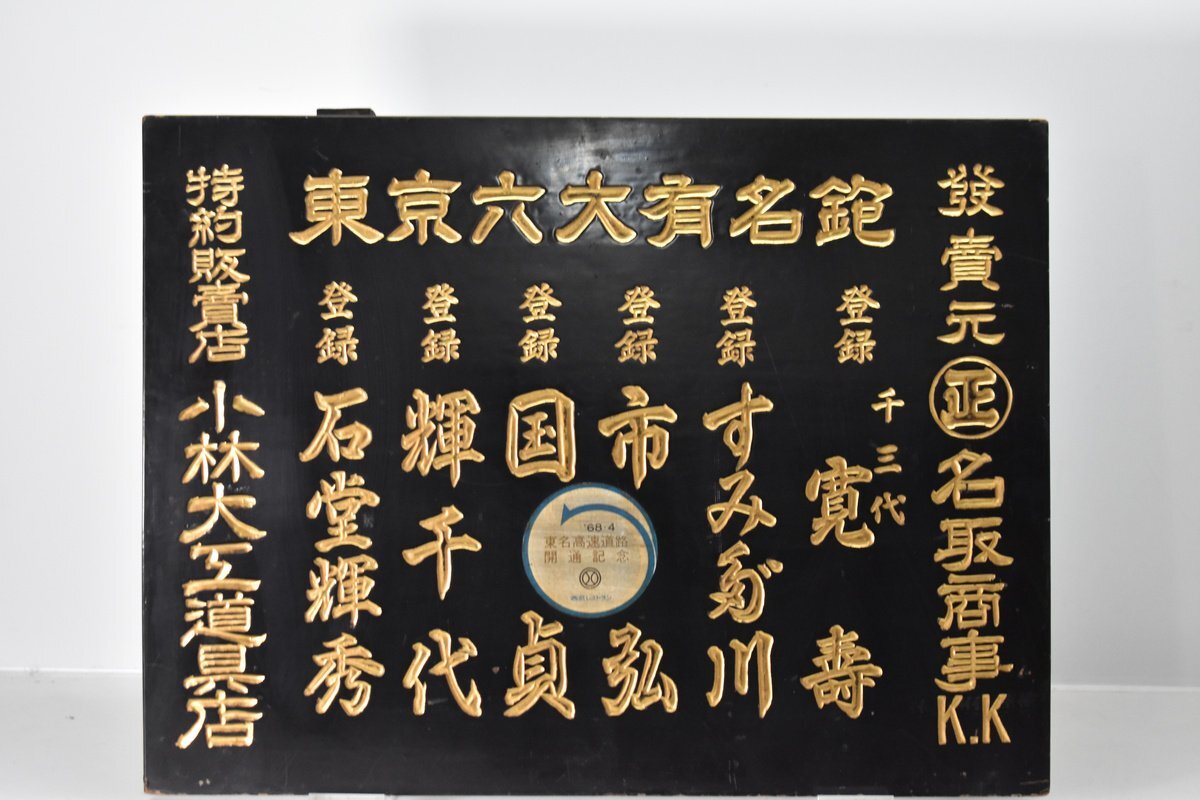 東京六大有名鉋
發賣元 ㊣ 名取商事K.K
登録 千三代 寛壽
登録 すみだ川
登録 市弘
登録 国貞
登録 輝千代
登録 石堂輝秀
特約販賣店 小林大工道具店
'68・4
東名高速道路
開通記念